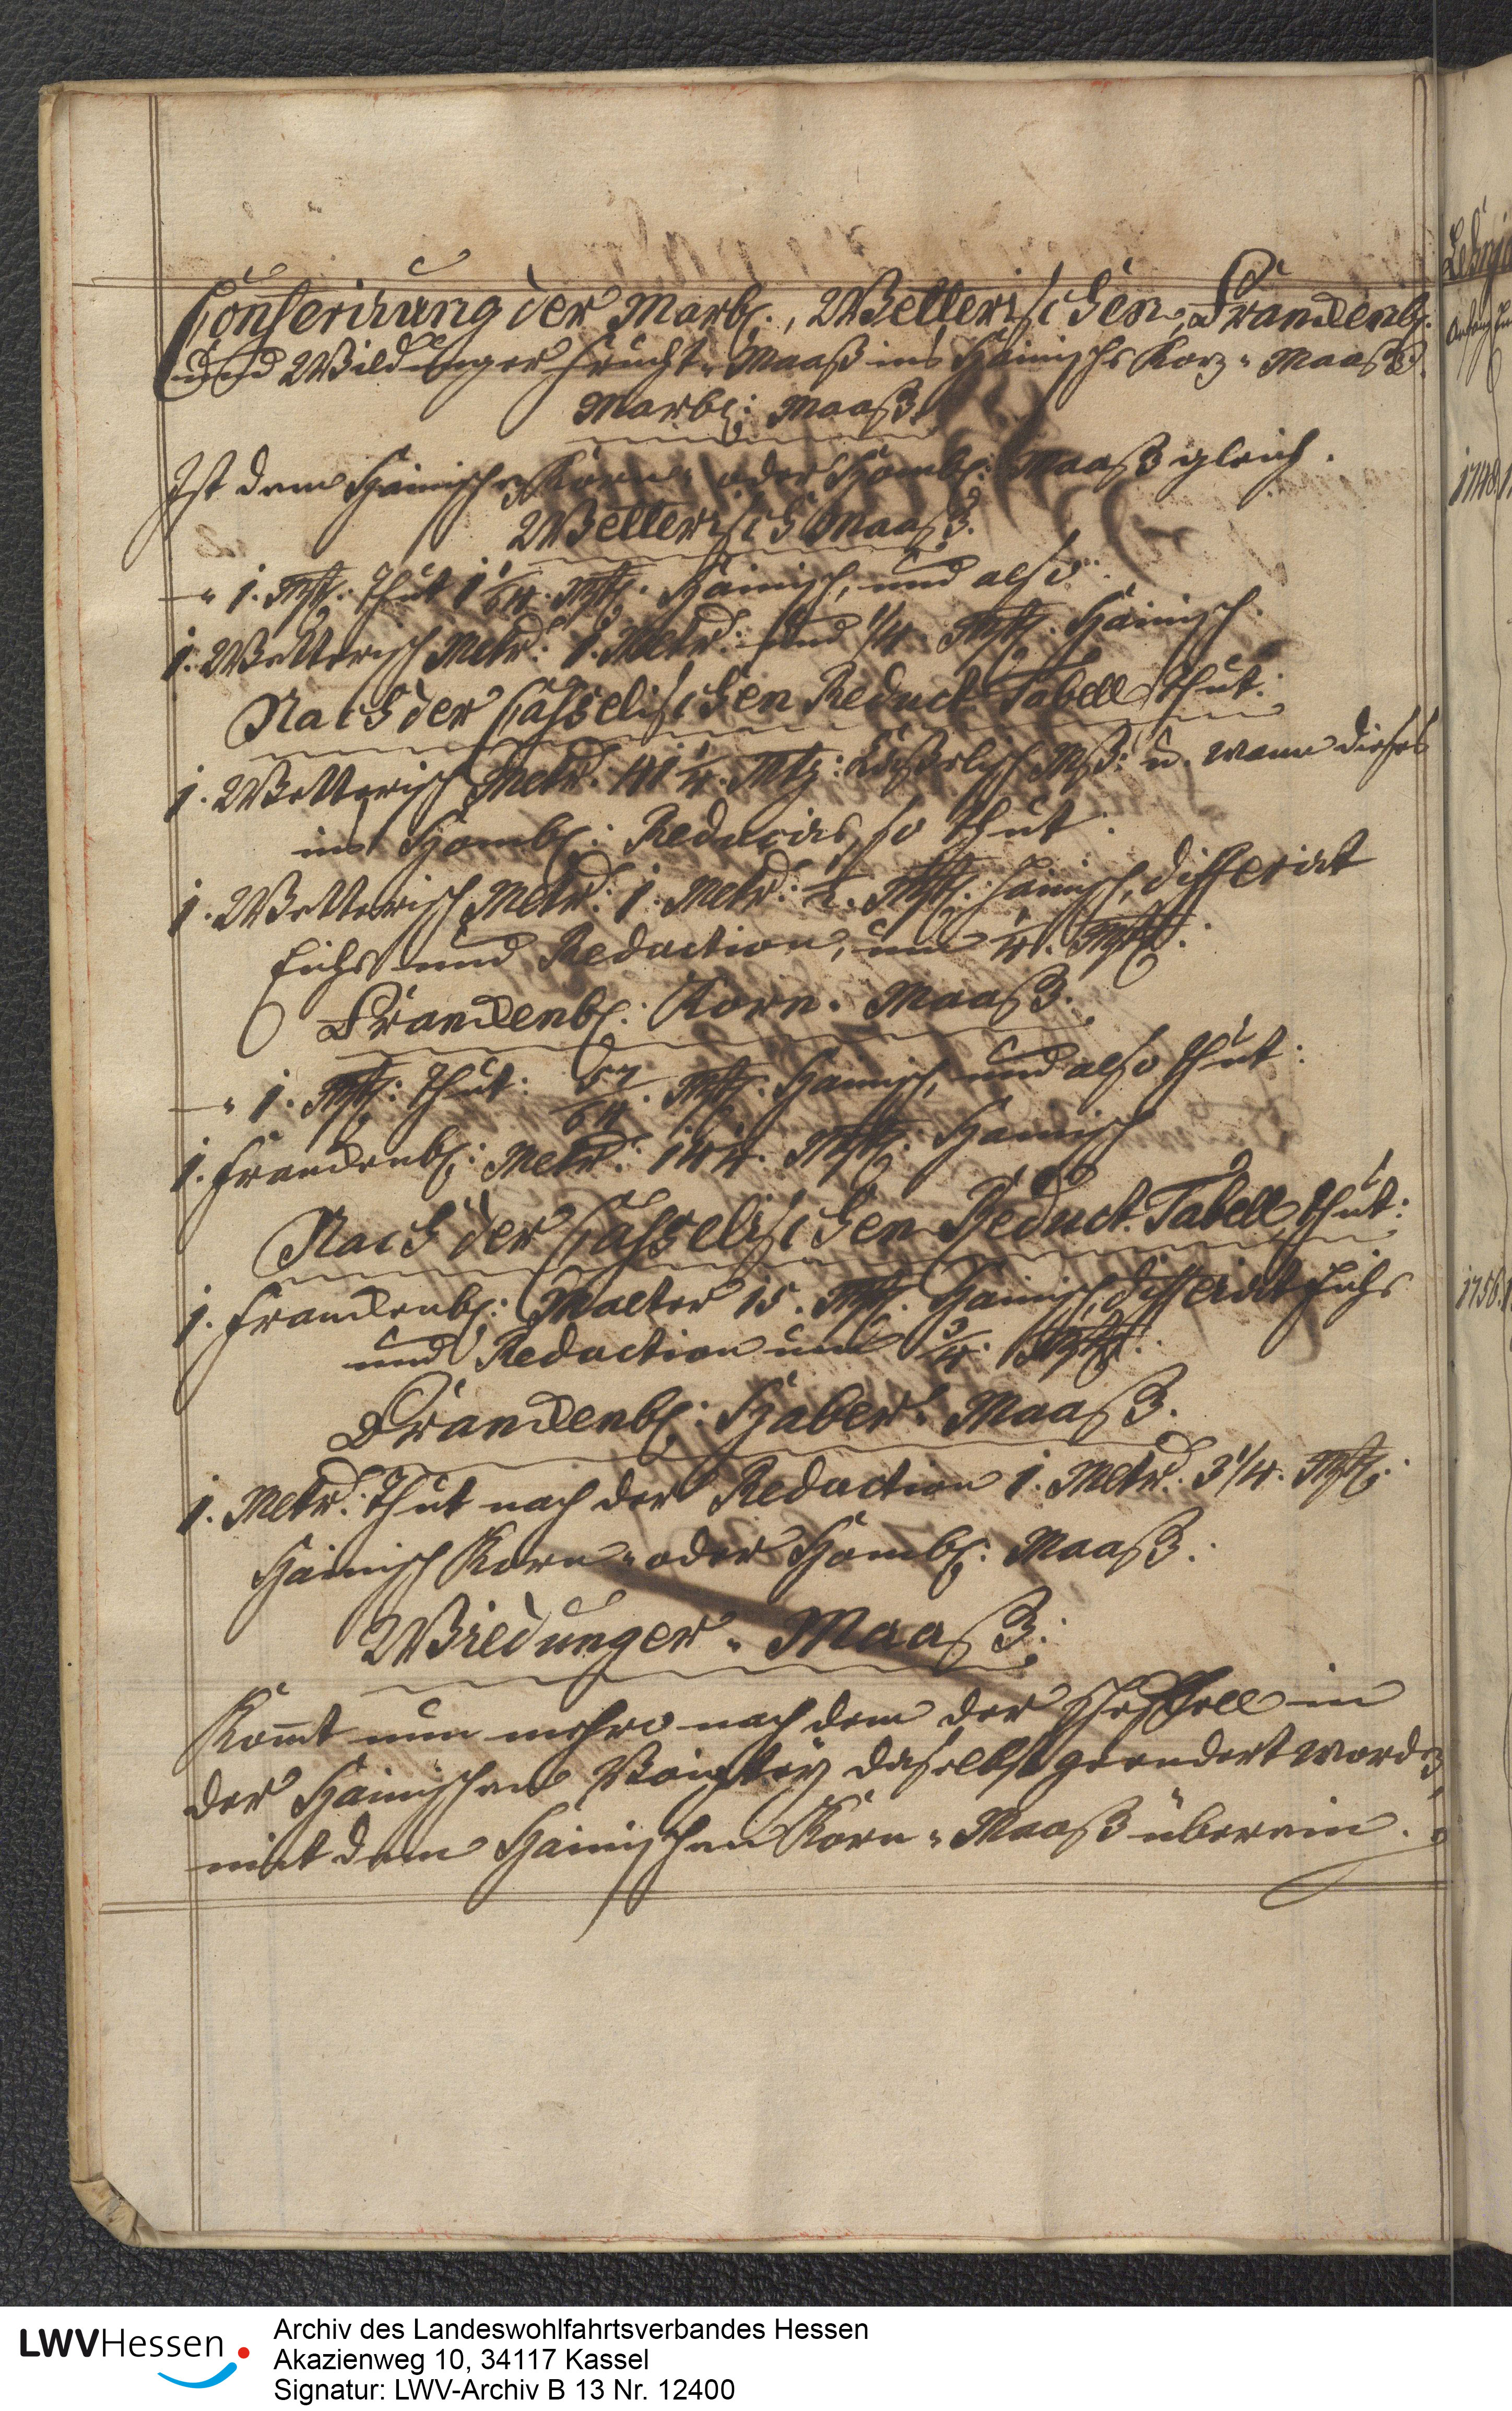 Conferirung der Marb:, Wetterischen, Franckenb:
und Wildunger Frucht-Maaß ins Hainische Korn-Maaß.
Marb: Maaß.
Ist dem Hainischen Korn- oder Homb: Maaß gleich.
Wetterisch Maaß.
1. Mtz: thut 1 1/64. Mtz: Hainisch, und also:
1. Wetterisch Mltr: 1. Mltr: und 1/4. Mtz: Hainisch.
Nach der Casselischen Reduct. Tabell thut:
1. Wetterisch Mltr: 41 1/4. Mtz: Caßelisch Mß: u. wann dieses
ins Homb: Reducirt, so thut:
1. Wetterisch Mltr: 1. Mltr: Mtz: Hainisch, differirt
Eiche und Reduction, um 1/4. Mtz:
Franckenb: Korn-Maaß.
1. Mtz: thut: 57/64. Mtz: Hainisch, und also thut:
1. Franckenb: Mltr: 14 1/4. Mtz: Hainisch
Nach der Casselischen Reduct. Tabell thut:
1. Franckenb: Malter 15. Mtz: Hainisch, differirt Eiche
und Reduction um 3/4. Mtz:
Franckenb: Haber-Maaß.
1. Mltr: thut nach der Reduction 1. Mltr: 3 1/4. Mtz:
Hainisch Korn- oder Homb: Maaß.
Wildunger-Maaß:
Kom̄t nun mehro nach dem der Scheffell in
der Hainischen Voigtey daselbst geendert worden,
mit dem Hainischen Korn-Maaß überein.
1748.
1758.
LWVHessen
Archiv des Landeswohlfahrtsverbandes Hessen
Akazienweg 10, 34117 Kassel
Signatur: LWV-Archiv B 13 Nr. 12400